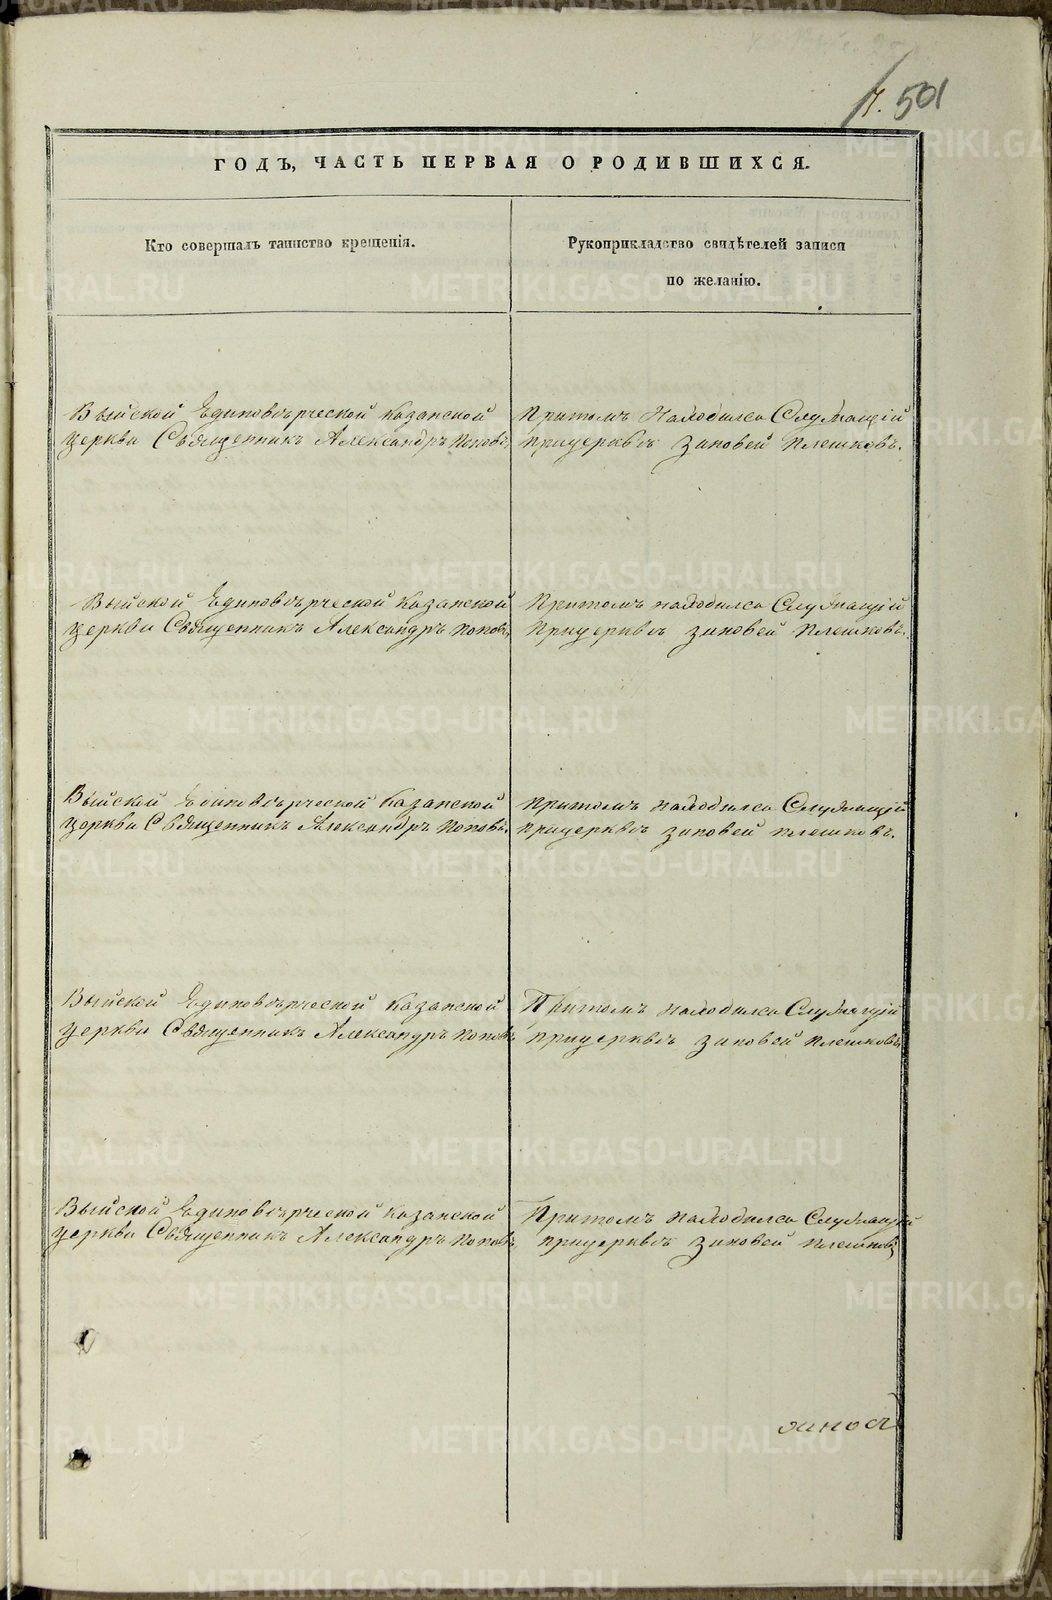 501
ГОДЪ, ЧАСТЬ ПЕРВАЯ О РОДИВШИХСЯ.
Кто совершалъ таинство крещенія.
Рукоприкладство свидѣтелей записи
по желанію.
Выйской Единовѣрческой Казанской
церкви Священникъ Александръ Поповъ.
Притомъ находился Служащій
прицерквѣ Зиновей Плешковъ.
Выйской Единовѣрческой Казанской
церкви Священникъ Александръ Поповъ.
Притомъ находился Служащій
Прицерквѣ Зиновей Плешковъ.
Выйской Единовѣрческой Казанской
церкви Священникъ Александръ Поповъ.
Притомъ находился Служащій
прицерквѣ Зиновей Плешковъ.
Выйской Единовѣрческой Казанской
церкви Священникъ Александръ Поповъ
Притомъ находился Служащій
прицерквѣ Зиновей Плешковъ
Выйской Единовѣрческой Казанской
церкви Священникъ Александръ Поповъ
Притомъ находился Служащій
прицерквѣ Зиновей Плешковъ
METRIKI.GASO-URAL.RU